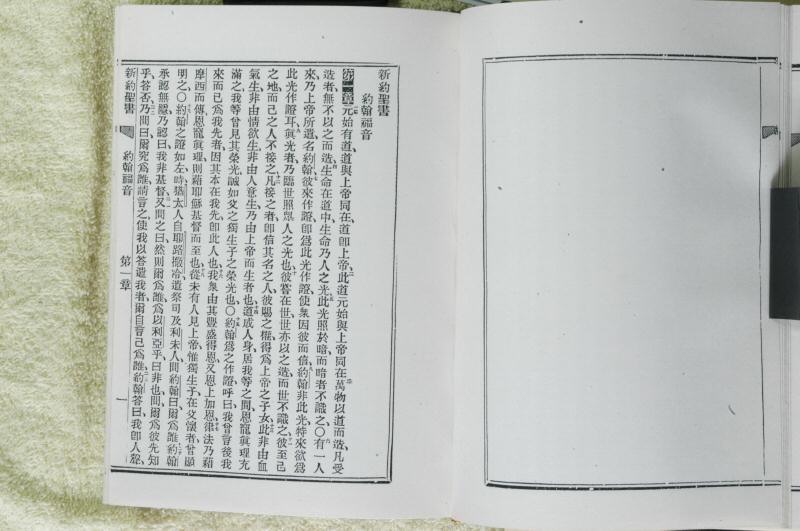 新約聖書
約翰福音
第一章元始有道、道與上帝同在、道卽上帝、此道元始與上帝同在、萬物以道而造、凡受
造者、無不以之而造、生命在道中、生命乃人之光、此光照於暗、而暗者不識之、〇有一人
來、乃上帝所遣、名約翰、彼來作證、卽爲此光作證、使衆因彼而信、約翰非此光、特來欲爲
此光作證耳、眞光者、乃臨世照衆人之光也、彼嘗在世、世亦以之造、而世不識之、彼至己
之地、而己之人不接之、凡接之者、卽信其名之人、彼賜之權、得爲上帝之子女、此非由血
氣生、非由情欲生、非由人意生、乃由上帝而生者也、道成人身、居我等之間、恩寵眞理充
滿之、我等曾見其榮光、誠如父之獨生子之榮光也、〇約翰爲之作證、呼曰、我曾言後我
來而已爲我先者、因其本在我先、卽此人也、我衆由其豐盛得恩、又恩上加恩、律法乃藉
摩西而傳、恩寵眞理則藉耶穌基督而至也、從未有人見上帝、惟獨生子在父懷者、曾顯
明之、〇約翰之證如左、時猶太人自耶路撒冷遣祭司及利未人問約翰曰、爾爲誰、約翰
承認無隱、乃認曰、我非基督、又問之曰、然則爾爲誰、爲以利亞乎、曰、非也、問爾爲彼先知
乎、答否、乃問曰、爾究爲誰、請言之、使我以答遣我者、爾自言己爲誰、約翰答曰、我卽人聲、
新約聖書 約翰福音 第一章 一